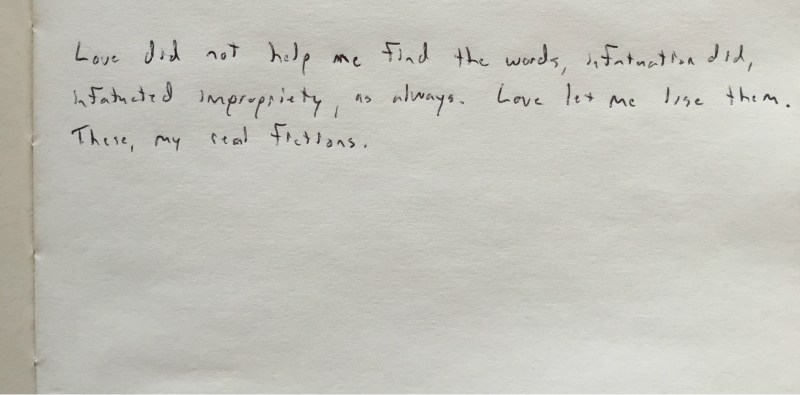 Love did not help me find the words, infatuation did,
infatuated impropriety, as always. Love let me lose them.
These, my real fictions.